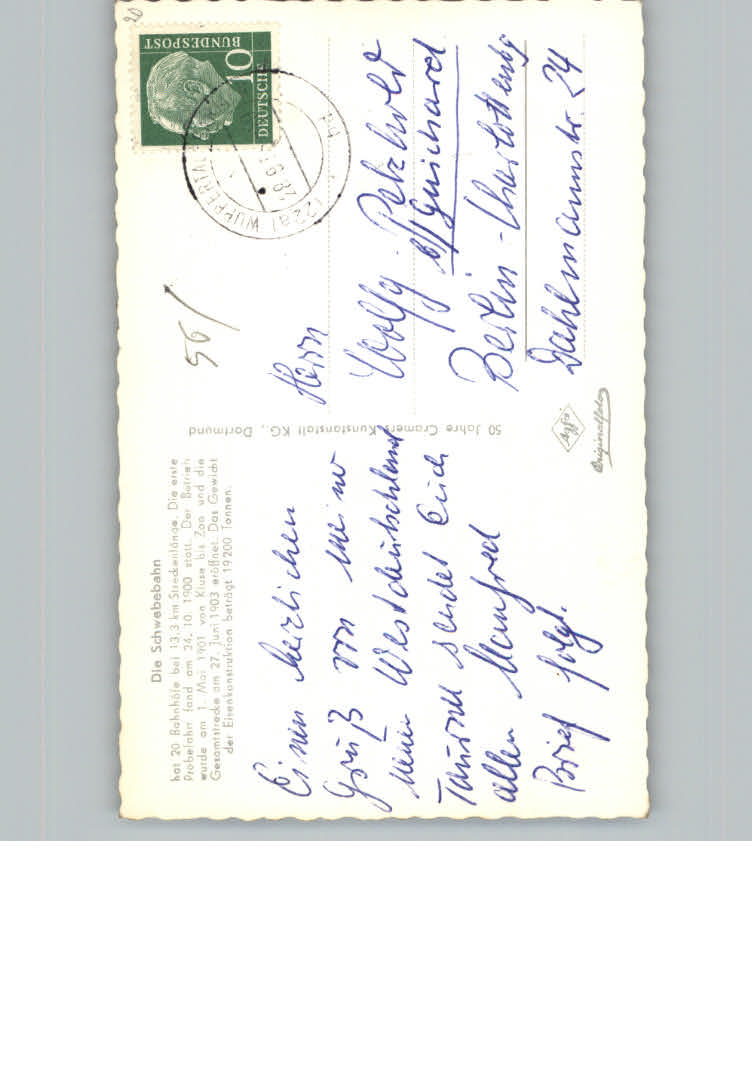 Die Schwebebahn
hat 20 Bahnhöfe bei 13,3 km Streckenlänge. Die erste
Probefahrt fand am 24. 10. 1900 statt. Der Betrieb
wurde am 1. Mai 1901 von Kluse bis Zoo und die
Gesamtstrecke am 27. Juni 1903 eröffnet. Das Gewicht
der Eisenkonstruktion beträgt 19200 Tonnen.
Einen herzlichen
Gruß von
Westdeutschland
sendet Euch
allen Manfred
Brief folgt.
50 Jahre Cramers Kunstanstalt KG., Dortmund
20
DEUTSCHE
BUNDESPOST
10
(22a) WUPPERTAL
56/
Herrn
Wolfg. Petzhold
b/ Guichard
Berlin-Charlottenbg
Dahlmannstr. 24
Agfa
Originalfoto